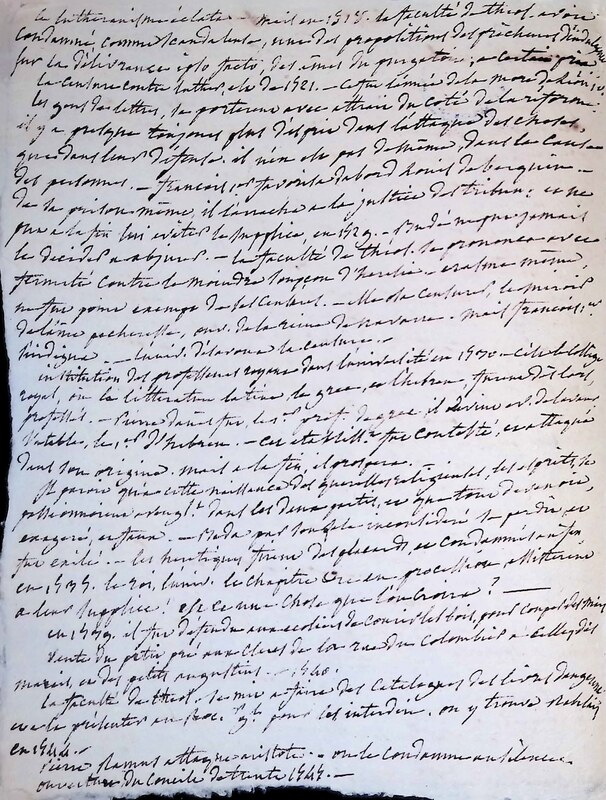 le lutheranisme éclate - mais en 1518. la faculté de théol. avoit
condamné, comme scandaleuse, une des propositions des prêcheurs d'indulgence
sur la délivrance ipso facto, des ames du purgatoire, a certain prix
la censure contre luther, est de 1521. - C'est l'année de la mort de Léon 10.
les gens de lettres, se porterent avec attrait du coté de la réforme
il y a presque toujours plus d'esprit dans l'attaque des choses
que dans leur défense. il n'en est pas de même, dans la cause
des personnes. - françois 1er favorisa d'abord Louis de berquin -
de sa prison même, il l'arracha a la justice des tribun; et ne
put a la fin lui eviter le supplice, en 1529. - budé ne put jamais
le decider a abjurer. - la faculté de théol. se prononca avec
fermeté contre le moindre soupçon d'heresie - erasme même,
ne fut point exempt de ses censures. - elle osa censurer, le miroir
de l'âme pecheresse, ouv. de la reine de navarre. mais françois 1er
s'indigna. - l'univ. désavoua la censure. -
institution des professeurs royaux dans l'université en 1530 - C'est le College
royal, ou la littérature latine, la grec, et l'hebreu, furent dès lors,
professés. - Pierre danes fut, les 1ers prof. de grec. il devint ev. de lavaur
Vatable, le 1er d'hebreu. - Cet étabill.t fut contesté, et attaqué
dans son origine. mais a la fin, il prospera.
Il paroit qu'a cette naissance des querelles religieuses, les esprits, se
passionnerent dans les deux partis, et que tout devenoit,
exagéré, et faux. - Beda par son zele inconsidéré se perdit, et
fut exilé. - les heretiques firent des placards et condamnés au feu
en 1535. le roi, l'univ. le chapitre en procession, assisterent
a leur supplice! est ce une chose que l'on croira? -
en 1539. il fut defendu aux ecoliers de courir les bois, pour couper des mais
Vente du petit pré aux clercs de la rue du Colombier a celle des
marais, et des petits augustins. - 1540.
la faculté de théol. se mit a faire des catalogues des livres dangereux
et a les présenter au proc. g.l pour les interdire. on y trouve rabelais
en 1544. -
Pierre Ramus attaque aristote. - on le condamne au silence.
ouverture du Concile de trente 1545. -